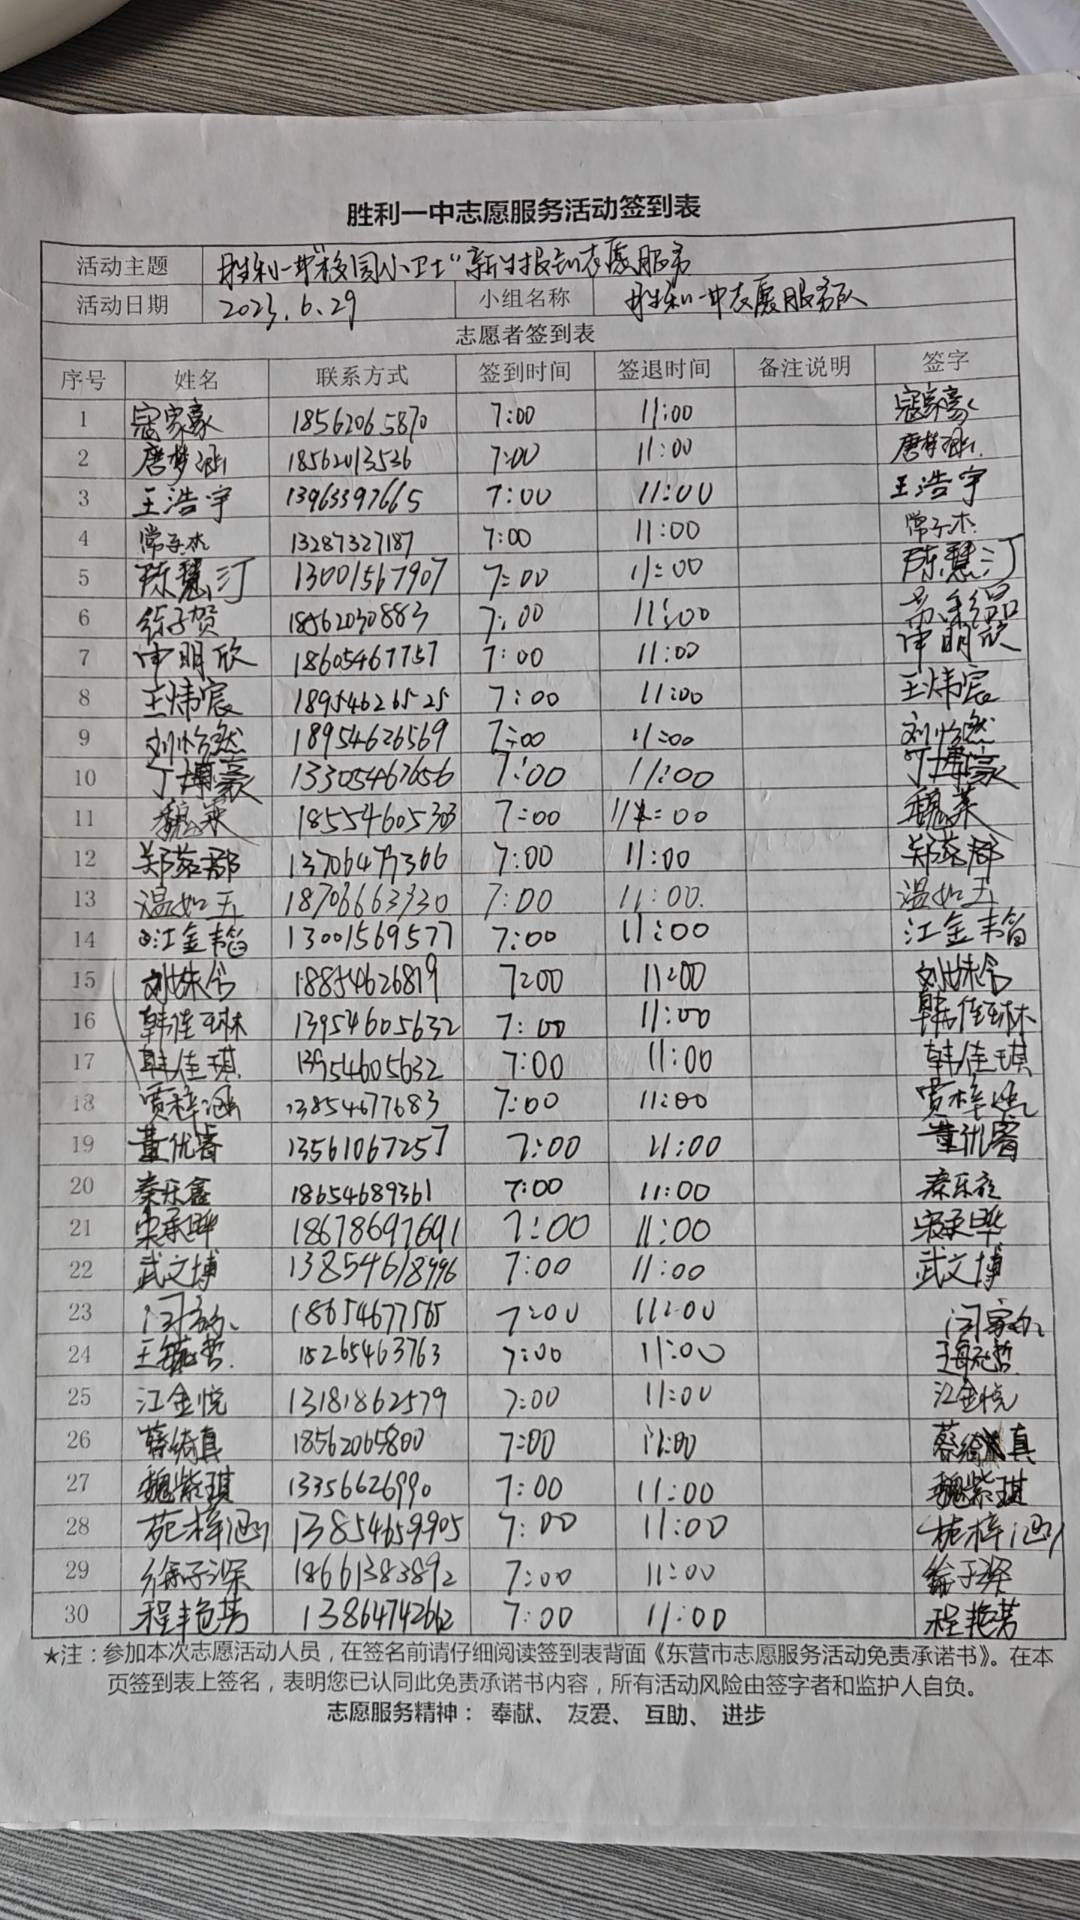 胜利一中志愿服务活动签到表
活动主题 胜利一中"校园小卫士"新生报到志愿服务
活动日期 2023.6.29 小组名称 胜利一中志愿服务队
志愿者签到表
序号 姓名 联系方式 签到时间 签退时间 备注说明 签字
1 寇家豪 18562065870 7:00 11:00 寇家豪
2 唐梦涵 18562013536 7:00 11:00 唐梦涵
3 王浩宇 13963397665 7:00 11:00 王浩宇
4 常子杰 13287327187 7:00 11:00 常子杰
5 陈慧汀 13001567907 7:00 11:00 陈慧汀
6 徐子贺 18562030883 7:00 11:00
7 申明欣 18605467757 7:00 11:00 申明欣
8 王炜宸 18954626525 7:00 11:00 王炜宸
9 刘怡然 18954626569 7:00 11:00 刘怡然
10 丁博豪 13305467656 7:00 11:00 丁博豪
11 魏莱 18554605303 7:00 11:00 魏莱
12 郑蕊郡 7:00 11:00 郑蕊郡
13 温如玉 18706663930 7:00 11:00. 温如玉
14 江金韬 13001569577 7:00 11:00 江金韬
15 刘姝含 18854626819 7:00 11:00 刘姝含
16 韩佳琳 13954605632 7:00 11:00 韩佳琳
17 韩佳琪 13954605632 7:00 11:00 韩佳琪
18 贾梓涵 13854677683 7:00 11:00 贾梓涵
19 董优睿 13561067257 7:00 11:00 董优睿
20 秦乐鑫 18654689361 7:00 11:00 秦乐鑫
21 宋承晔 18678697691 7:00 11:00 宋承晔
22 武文博 13854618996 7:00 11:00 武文博
23 18654677565 7:00 11:00
24 15265463763 7:00 11:00
25 江金悦 13181862579 7:00 11:00 江金悦
26 蔡绮真 18562065800 7:00 11:00
27 魏紫琪 13356626990 7:00 11:00 魏紫琪
28 苑梓涵 13854659905 7:00 11:00 苑梓涵
29 徐子深 18661383892 7:00 11:00 徐子深
30 程艳茗 13864742662 7:00 11:00 程艳茗
★注：参加本次志愿活动人员，在签名前请仔细阅读签到表背面《东营市志愿服务活动免责承诺书》。在本
页签到表上签名，表明您已认同此免责承诺书内容，所有活动风险由签字者和监护人自负。
志愿服务精神： 奉献、 友爱、 互助、 进步